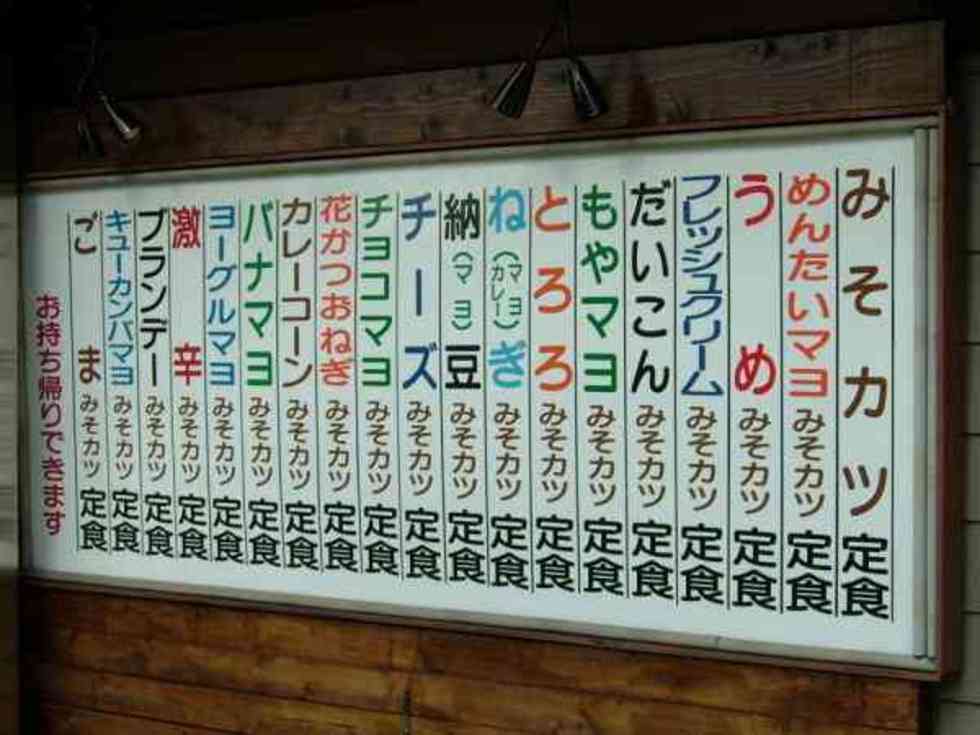 みそカツ定食
めんたいマヨみそカツ定食
うめみそカツ定食
フレッシュクリームみそカツ定食
だいこんみそカツ定食
もやマヨみそカツ定食
とろろみそカツ定食
ねぎ(マヨカレー)みそカツ定食
納豆(マヨ)みそカツ定食
チーズみそカツ定食
チョコマヨみそカツ定食
花かつおねぎみそカツ定食
カレーコーンみそカツ定食
バナマヨみそカツ定食
ヨーグルマヨみそカツ定食
激辛みそカツ定食
ブランデーみそカツ定食
キューカンバマヨみそカツ定食
ごまみそカツ定食
お持ち帰りできます